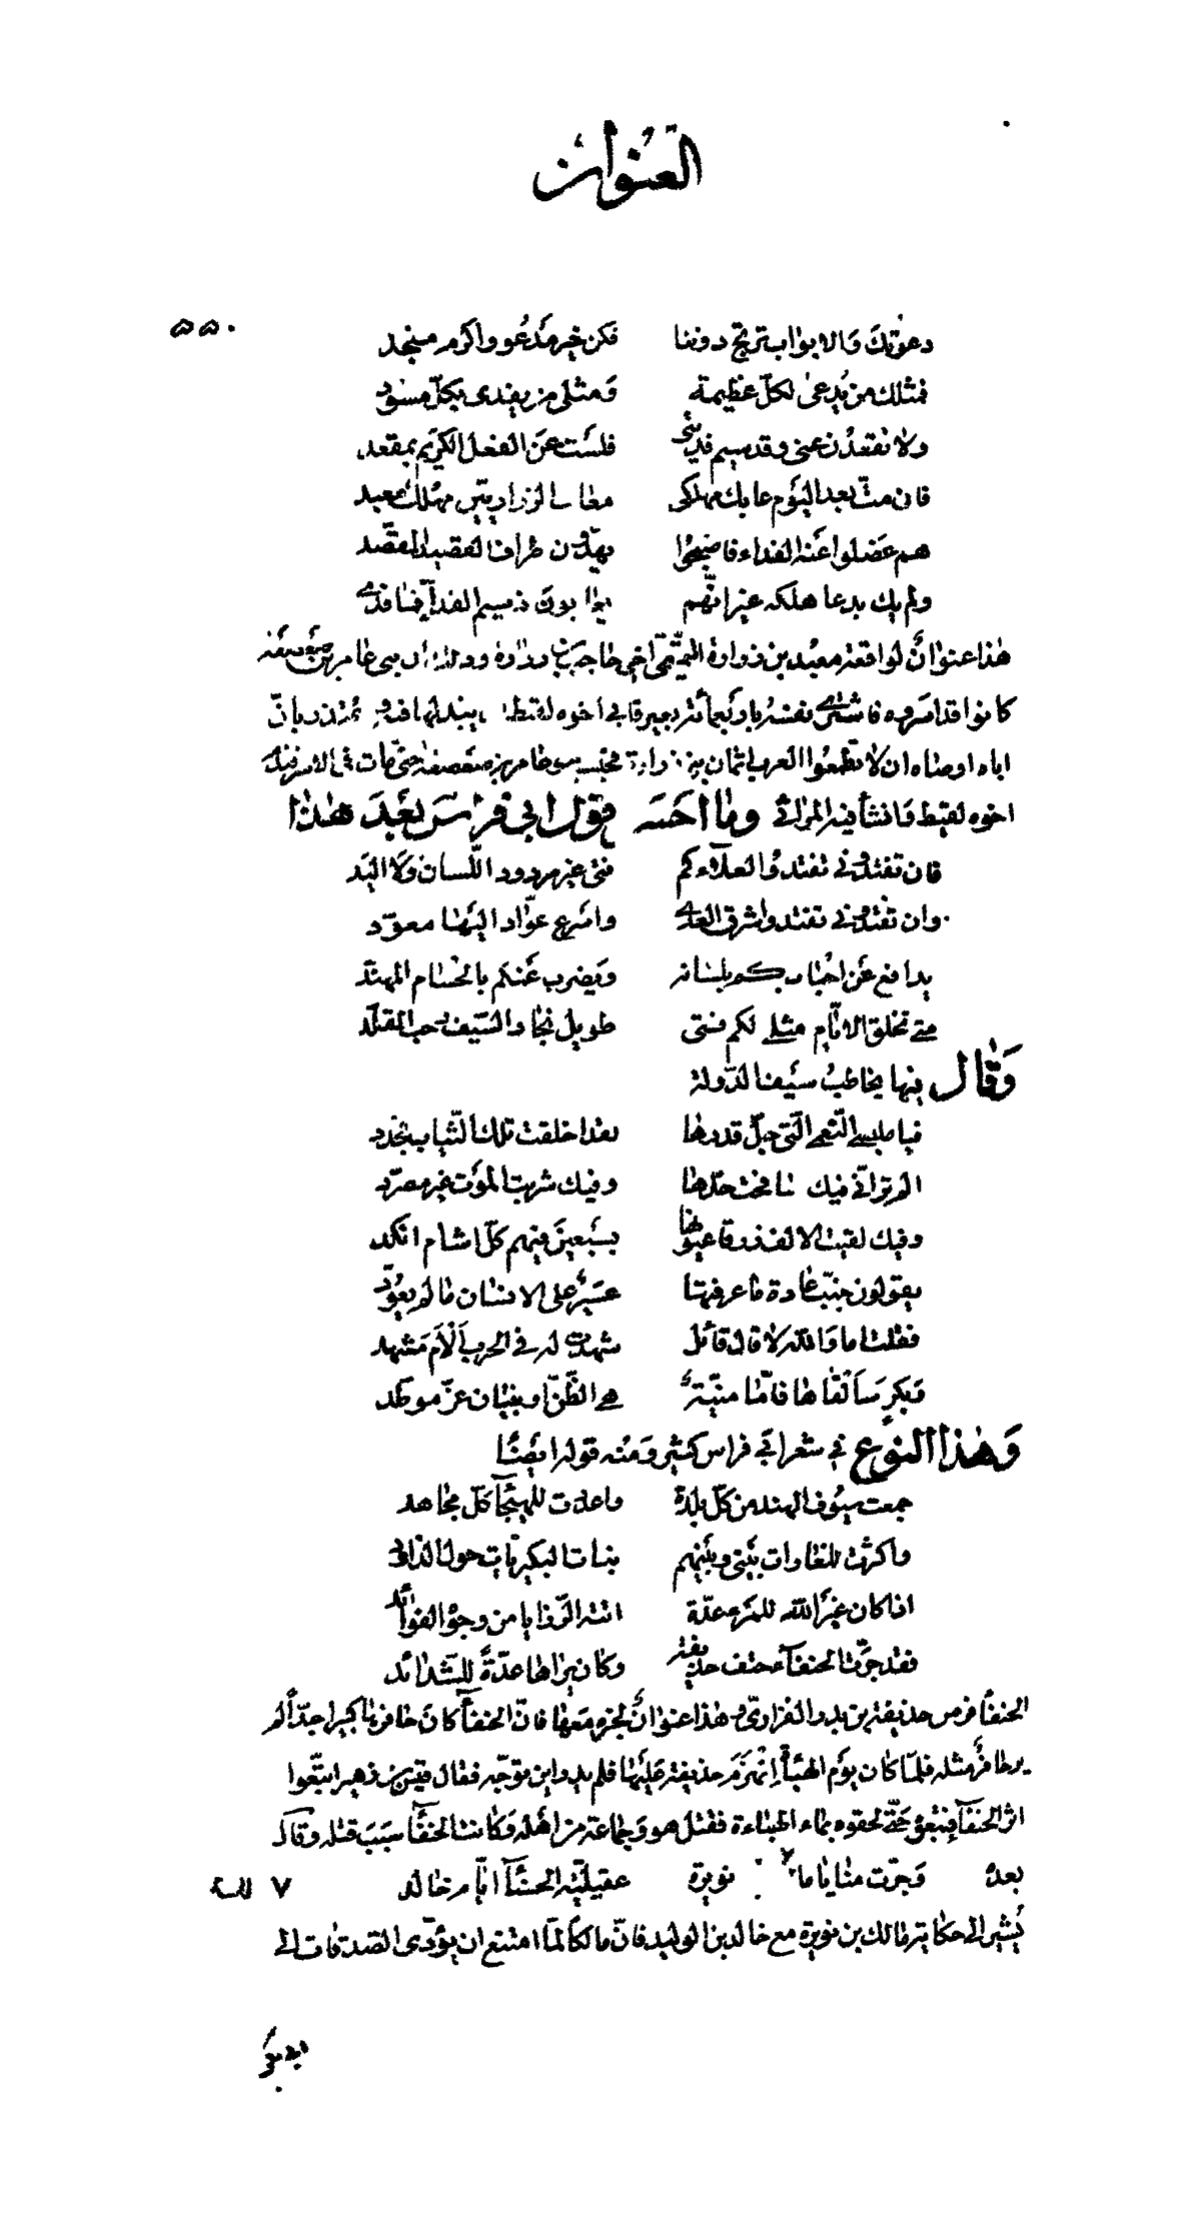 العنوان
٥٥٠
دعوتك والابواب ترتج دوننا فكن خير مدعو واكرم منجد
فمثلك من يدعى لكل عظيمة ومثلى من يفدى بكل مسود
ولا تقعدن عنى وقد سيم فديتى فلست عن الفعل الكريم بمقعد
فان مت بعد اليوم عابك مهلكى معاب الزراريين مهلك معبد
هم عضلوا عنه الفداء فاصبحوا يهذون اطراف القصيد المقصد
ولم يك بدعا هلكه غير انهم يعابون اذ سيم الفدآء فما فدى
هذا عنوان لواقعة معبد بن زرارة التميمى اخى حاجب بن زرارة وذلك ان بنى عامر بن صعصعة
كانوا قد اسروه فاشترى نفسه باربعمائة بعير فابى اخوه لقيط ان يبذلها فدية واعتذر بان
اباه اوصاه ان لا تطمعوا العرب باثمان بنى زرارة فحبسه بنو عامر بن صعصعة حتى مات فى الاسر فندم
اخوه لقيط فانشأ فيه المراثى وما احسن قول ابى فراس بعد هذا
فان تفتدونى تفتدوا لعلآءكم فتى غير مردود اللسان ولا اليد
وان تفتدونى تفتدوا شرف العلى واسرع عواد اليها معود
يدافع عن احسابكم بلسانه ويضرب عنكم بالحسام المهند
متى تخلق الايام مثلى لكم فتى طويل نجاد السيف رحب المقلد
وقال فيها يخاطب سيف الدولة
فيا ملبسى النعمى التى جل قدرها لقد اخلقت تلك الثياب فجدد
الم تر انى فيك صافحت حدها وفيك شربت الموت غير مصرد
وفيك لقيت الالف زرقا عيونها بسبعين فيهم كل اشام انكد
يقولون جنب عادة ما عرفتها عسير على الانسان ما لم يعود
فقلت اما والله لا قال قائل شهدت له فى الحرب ألأم مشهد
ولكن سألقاها فاما منية هى الظن او بنيان عز موطد
وهذا النوع فى شعر ابى فراس كثير ومنه قوله ايضا
جمعت سيوف الهند من كل بلدة واعددت للهيجآء كل مجاهد
واكثرت للغارات بينى وبينهم بنات البكيريات حول المذاود
اذا كان غير الله للمرء عدة اتته الرزايا من وجوه الفوائد
فقد جرت الحنفآء حتف حذيفة وكان يراها عدة للشدائد
الحنفآء فرس حذيفة بن بدر الفزارى وهذا عنوان لخبره معها فان الحنفآء كان حافرها كبيرا جدا لم
ير حافر مثله فلما كان يوم الهبآءة انهزم حذيفة عليها فلم يدر اين توجه فقال قيس بن زهير اتبعوا
اثر الحنفآء فتبعوه حتى لحقوه بماء الهباءة فقتل هو وجماعة من اهله وكانت الحنفآء سبب قتله وقال
بعده وجرت منايا مالك بن نويرة عقيلته الحسنآء ايام خالد
يشير الى حكاية مالك بن نويرة مع خالد بن الوليد فان مالكا لما امتنع ان يؤدى الصدقات الى